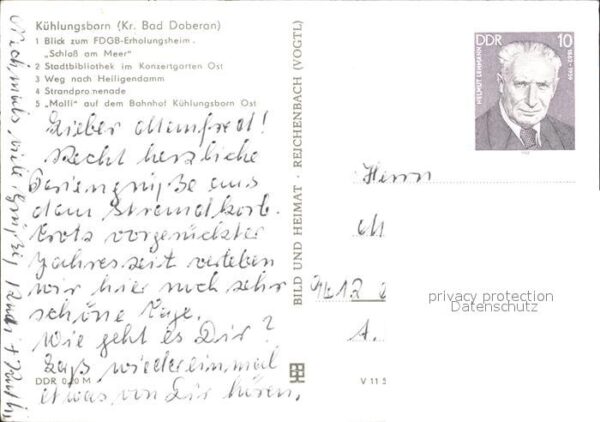 Kühlungsborn (Kr. Bad Doberan)
1 Blick zum FDGB-Erholungsheim
„Schloß am Meer"
2 Stadtbibliothek im Konzertgarten Ost
3 Weg nach Heiligendamm
4 Strandpromenade
5 „Molli" auf dem Bahnhof Kühlungsborn Ost
Lieber Manfred!
Recht herzliche
Feriengrüße aus
dem Strandkorb.
Trotz vorgerückter
Jahreszeit verleben
wir hier noch sehr
schöne Tage.
Wie geht es Dir?
Laß wieder einmal
etwas von Dir hören.
viele Grüße
DDR 0,20 M
BILD UND HEIMAT · REICHENBACH (VOGTL)
V 11 5
DDR 10
HELMUT LEHMANN
1882-1959
Herrn
M
9412
A.
privacy protection
Datenschutz